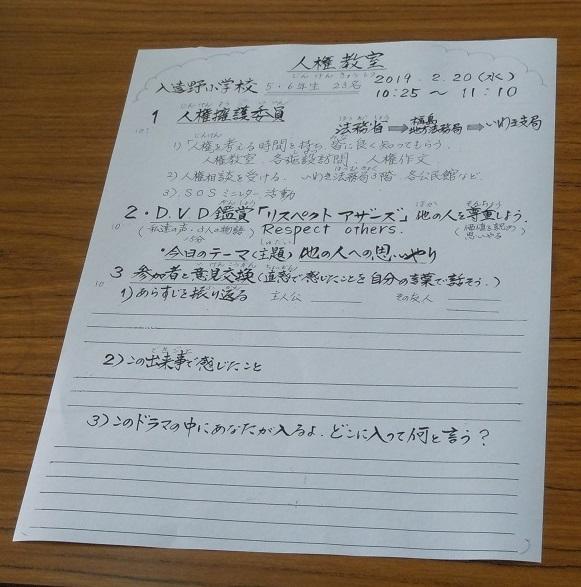 人権教室
じんけんきょうしつ
入遠野小学校 5・6年生 23名 2019.2.20(水)
10:25～11:10
1 人権擁護委員 法務省➡福島地方法務局➡いわき支局
1)「人権を考える時間を持ち、皆に良く知ってもらう。
人権教室 各施設訪問 人権作文
2)人権相談を受ける。 いわき法務局3階、各公民館など。
3).SOSミニレター活動
2・D.V.D鑑賞「リスペクト アザーズ」他の人を尊重しよう。
10 (私達の声・3人の物語) Respect others. (価値を認め思いやる)
15分
・今日のテーマ(主題)他の人への思いやり
3 参加者と意見交換(直感で感じたことを自分の言葉で話そう。)
10 1)あらすじを振り返る 主人公 その友人
2)この出来事で感じたこと
3)このドラマの中にあなたが入るよ.どこに入って何と言う?